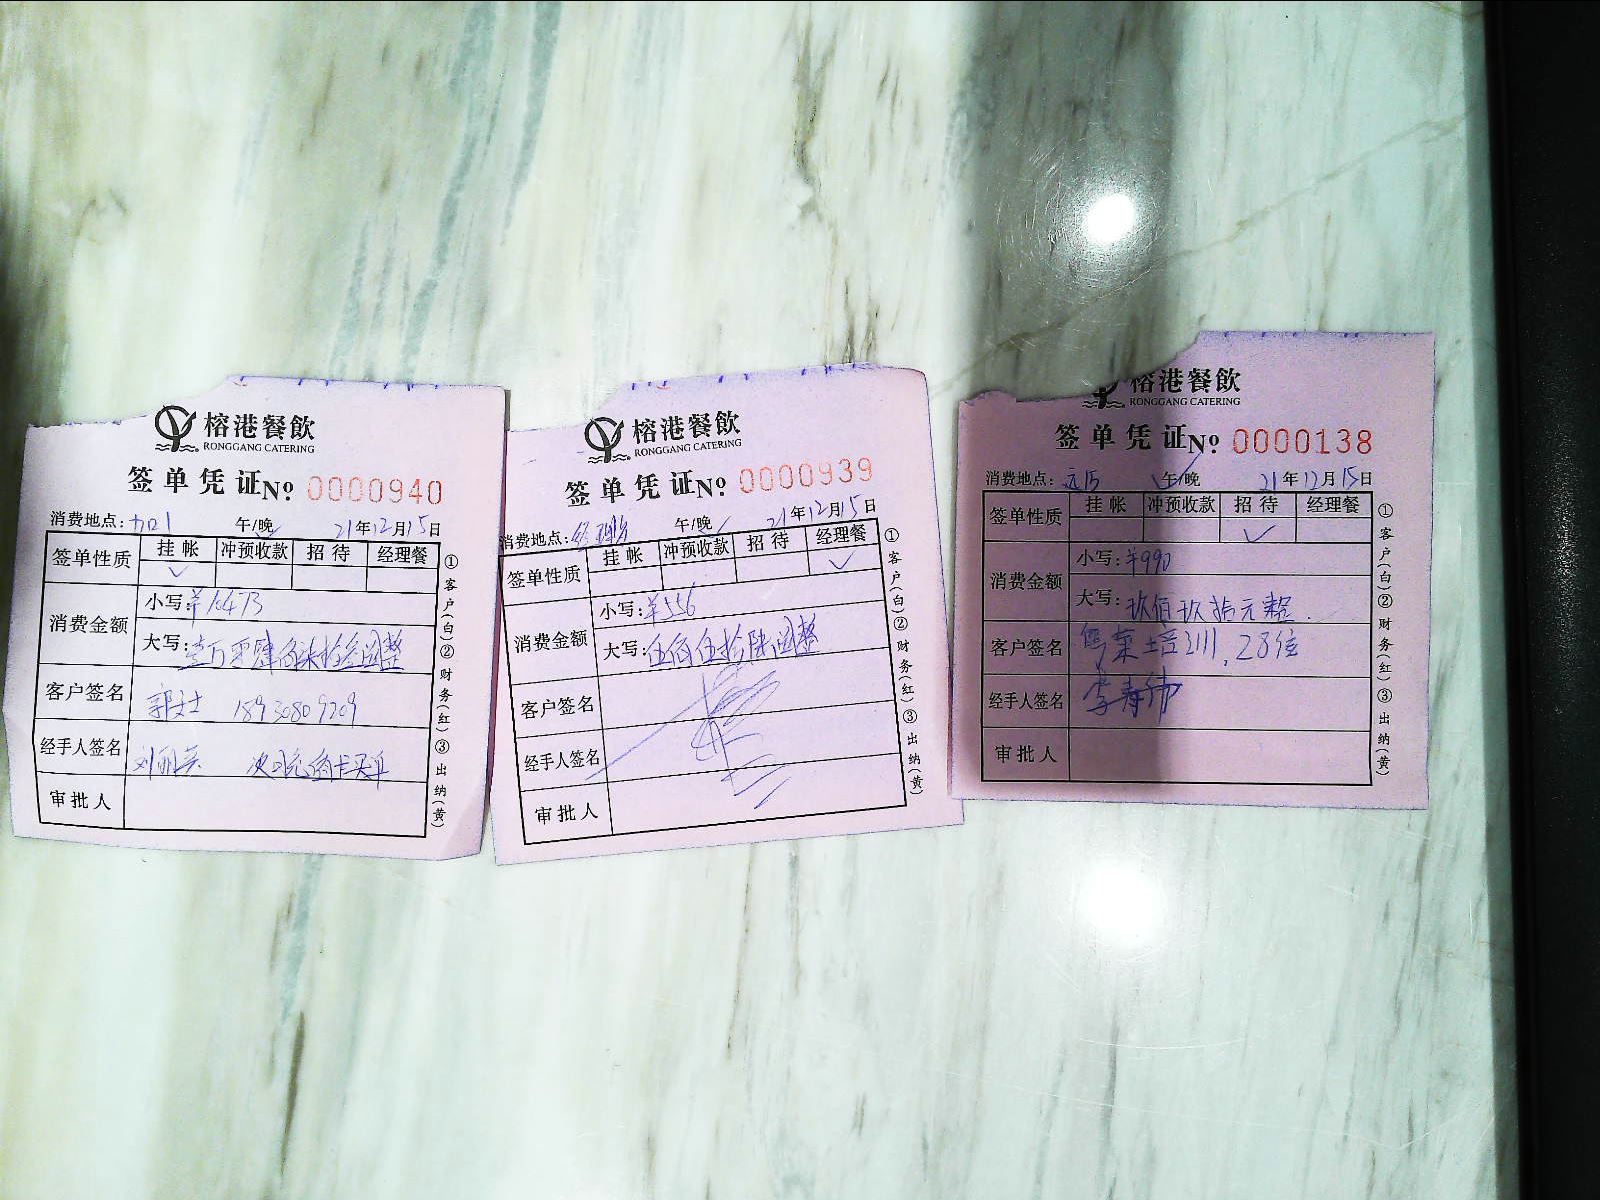 榕港餐飲
RONGGANG CATERING
签单凭证 No 0000940
消费地点: 午/晚 21年12月15日
签单性质 挂帐 冲预收款 招待 经理餐
✓
消费金额 小写:¥10473
大写:壹万零肆佰柒拾叁圆整
客户签名 郭女士 18930809209
经手人签名
审批人
①客户(白)②财务(红)③出纳(黄)
榕港餐飲
RONGGANG CATERING
签单凭证 No 0000939
消费地点: 午/晚 21年12月15日
签单性质 挂帐 冲预收款 招待 经理餐
✓
消费金额 小写:¥556
大写:伍佰伍拾陆圆整
客户签名
经手人签名
审批人
①客户(白)②财务(红)③出纳(黄)
榕港餐飲
RONGGANG CATERING
签单凭证 No 0000138
消费地点: 午/晚 21年12月15日
签单性质 挂帐 冲预收款 招待 经理餐
✓
消费金额 小写:¥990
大写:玖佰玖拾元整
客户签名 培训,28位
经手人签名 李寿伟
审批人
①客户(白)②财务(红)③出纳(黄)